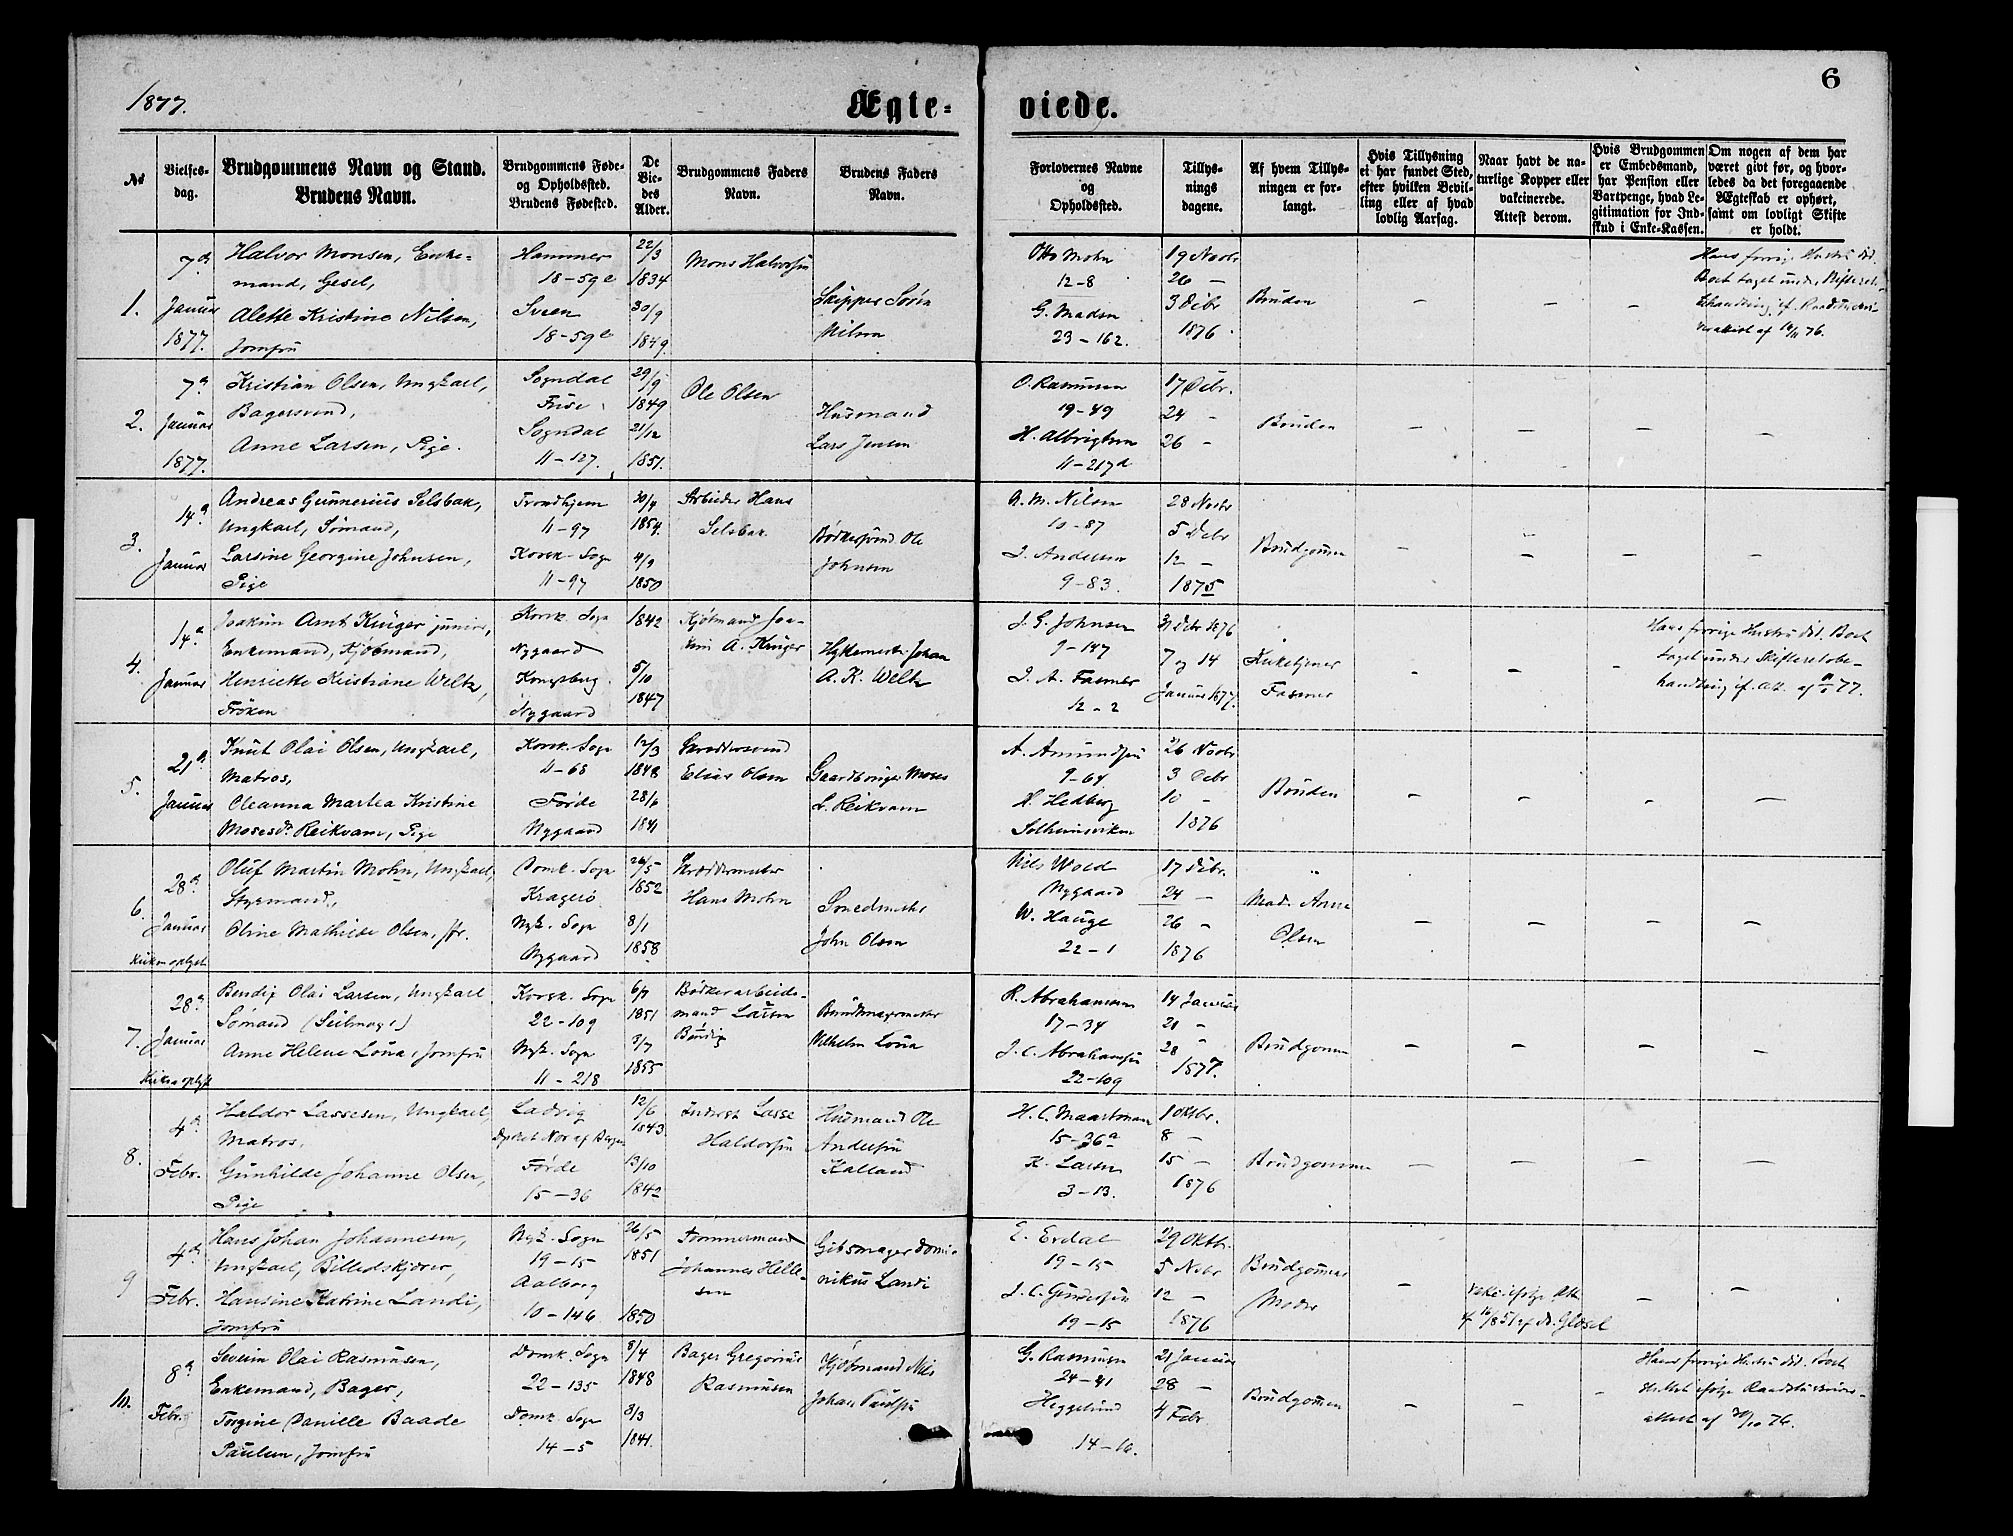 6
1877.
Ægte- viede.
№
Vielses-
dag.
Brudgommens Navn og Stand.
Brudens Navn.
Brudgommens Føde-
og Opholdssted.
Brudens Fødested.
De
Vie-
des
Alder.
Brudgommens Faders
Navn.
Brudens Faders
Navn.
Forlovernes Navne
og
Opholdssted.
Tillys-
nings
dagene.
Af hvem Tillys-
ningen er for-
langt.
Hvis Tillysning
ei har fundet Sted,
efter hvilken Bevil-
ling eller af hvad
lovlig Aarsag.
Naar havt de na-
turlige Kopper eller
vakcinerede.
Attest derom.
Hvis Brudgommen
er Embedsmand,
har Pension eller
Vartpenge, hvad Le-
gitimation for Ind-
skud i Enke-Kassen.
Om nogen af dem har
været givt før, og hvor-
ledes da det foregaaende
Ægteskab er ophørt,
samt om lovligt Skifte
er holdt.
1.
7de
Januar
1877.
Halvor Monsen, Enke-
mand, Gesel,
Alette Kristine Nilsen,
Jomfru
Hammer
18-59e
Sveen
18-59e
22/3
1834
30/9
1849.
Mons Halvorsen
Skipper Søren
Nilsen
Otto Mohn
12-8
G. Madsen
23-162.
19 Novbr
26 -
3 Debr
1876.
Bruden
- - -
Hans forrige Hustru død.
Boet taget under Skifterets
behandling
2.
7de
Januar
1877.
Kristian Olsen, Ungkarl,
Bagersvend,
Anne Larsen, Pige.
Sogndal
Sogndal
11-127.
29/9
1849
21/12
1851.
Ole Olsen
Husmand
Lars Jensen
O. Rasmussen
19-49
H. Albrigtsen
11-217d
17 Debr.
24 -
26 -
Bruden
- - - -
3.
14de
Januar
Andreas Gunnerius Selsbak,
Ungkarl, Sømand,
Larsine Georgine Johnsen,
Pige
Trondhjem
11-97
Korsk. Sogn
11-97
1854.
4/9
1850
Arbeider Hans
Selsbak
Bødkersvend Ole
Johnsen
N. M. Nilsen
10-87
J. Andersen
9-83.
28 Novbr
5 Debr
12 -
1875
Brudgommen
- - - -
4.
14de
Januar
Joakim Arnt Krüger junior,
Enkemand, Kjøbmand,
Henriette Kristiane Weltz,
Frøken
Korsk. Sogn
Nygaard
Kongsberg
Nygaard
1842
5/10
1847
Kjøbmand Joa-
kim A. Krüger
Johan
A. K. Weltz
J. G. Johnsen
9-147
J. A. Fasmer
12-2
31 Debr 1876
7 og 14
Januar 1877.
Kirketjener
Fasmer
- - -
Hans forrige Hustru død. Boet
taget under Skifteretsbe-
handling
5.
21de
Januar
Knut Olai Olsen, Ungkarl,
Matros,
Oleanna Martea Kristine
Mosesdr. Reikvam, Pige
Korsk. Sogn
11-68
Førde
Nygaard
12/3
1848
28/6
1841
Skræddersvend
Elias Olsen
Gaardbruger Moses
L. Reikvam
A. Amundsen
9-64
H. Hedberg
Solheimsviken
26 Novbr
3 Debr
10 -
1876
Bruden
- - - -
6.
28de
Januar
Kirken oplyst
Oluf Martin Mohn, Ungkarl,
Styrmand,
Oline Mathilde Olsen, Jfr.
Domk. Sogn
Kragerø
Nyk. Sogn
Nygaard
26/5
1852
8/1
1858
Skræddermester
Hans Mohn
Smedmester
John Olsen
Nils Wold
Nygaard
W. Hauge
22-1
17 Debr.
24 -
26 -
1876
Mad. Anna
Olsen
- - - -
7.
28de
Januar
Kirken oplyst
Bendix Olai Larsen, Ungkarl
Sømand
Anne Helene Loua, Jomfru
Korsk. Sogn
22-109
Nyk. Sogn
11-218
1851
3/7
1855
Bødkerarbeids-
mand Larsen
Bendix
Buntmagermester
Vilhelm Loua
R. Abrahamsen
17-34
J. C. Abrahamsen
22-109
14 Januar
21 -
28 -
1877.
Brudgommen
- - - -
8.
4de
Febr.
Haldor Lassesen, Ungkarl,
Matros,
Gunhilde Johanne Olsen,
Pige
Ladvig
Førde
15-36
12/6
1843
13/10
1842
Lasse
Haldorsen
Husmand Ole
Andersen
Kalland
H. C. Maartmann
15-36a
K. Larsen
3-13.
1 Oktbr.
8 -
15 -
1876
Brudgommen
- - - -
9
4de
Febr.
Hans Johan Johannesen,
Ungkarl, Billedskjærer,
Hansine Katrine Landi,
Jomfru
Nyk. Sogn
19-15
Aalborg
10-146
26/5
1851
1850
Tømmermand
Johannes Helle-
sen
Gibsmager Domi-
nikus Landi
E. Erdal
19-15
J. C. Gundersen
19-15
29 Oktbr.
5 Novbr
12 -
1876
Brudgommens
Moder
-
vakc. ifølge Att.
- -
10.
8de
Febr.
Severin Olai Rasmussen,
Enkemand, Bager,
Torgine Danille Baade
Paulsen, Jomfru
Domk. Sogn
22-135
Domk. Sogn
14-5
8/4
1848
3/3
1841.
Bager Gregorius
Rasmussen
Kjøbmand Nils
Johan Paulsen
G. Rasmussen
24-41
Heggelund
14-16.
21 Januar
28 -
4 Febr.
Brudgommen
- - -
Hans forrige Hustru død. Boet